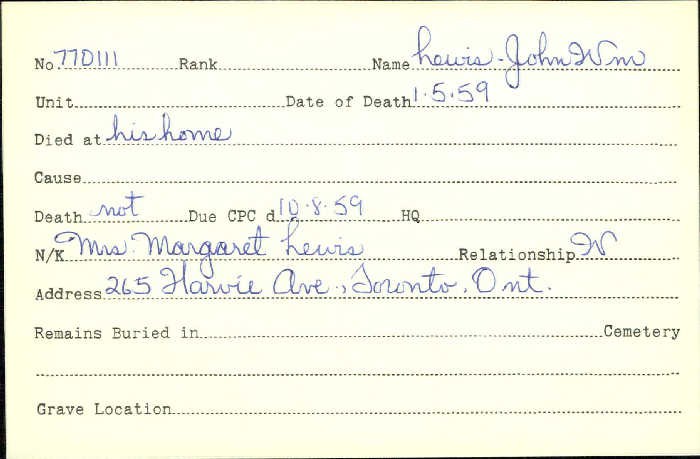 No. 770111 Rank Name Lewis - John Wm
Unit Date of Death 1.5.59
Died at his home
Cause
Death not Due CPC d. 10.8.59 HQ
N/K Mrs. Margaret Lewis Relationship W
Address 265 Harvie Ave., Toronto, Ont.
Remains Buried in Cemetery
Grave Location